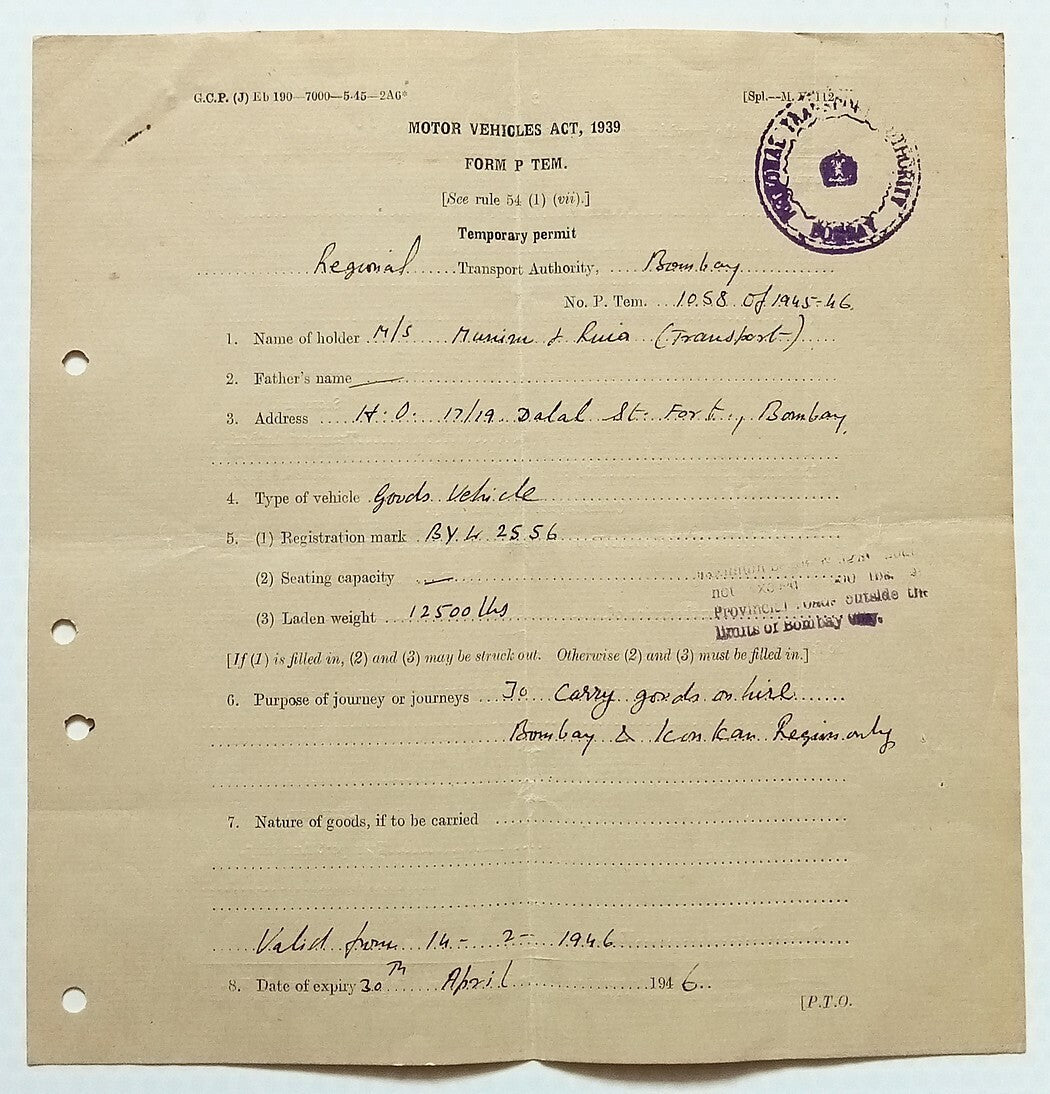 G.C.P. (J) Eb 190—7000—5-45—2A6*
[Spl.—M. V. 112
MOTOR VEHICLES ACT, 1939
FORM P TEM.
[See rule 54 (1) (vii).]
REGIONAL TRANSPORT AUTHORITY
BOMBAY
Temporary permit
Regional Transport Authority, Bombay
No. P. Tem. 1058 of 1945-46.
1. Name of holder M/s Munim & Ruia (Transport)
2. Father's name —
3. Address H. O. 17/19 Dalal St. Fort, Bombay.
4. Type of vehicle Goods Vehicle
5. (1) Registration mark BYL 2556
(2) Seating capacity —
(3) Laden weight 12500 lbs
not lbs.
Provincial roads outside the
limits of Bombay City.
[If (1) is filled in, (2) and (3) may be struck out. Otherwise (2) and (3) must be filled in.]
6. Purpose of journey or journeys To carry goods on hire
Bombay & Konkan Region only
7. Nature of goods, if to be carried
Valid from 14 - 2 - 1946
8. Date of expiry 30th April 1946.
[P.T.O.